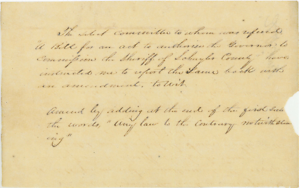 The select committee to whom was refered
A Bill for an act to authorise the Governor to
commission the Sheriff of County have
instructed me to report the same back with
an amendment, to wit.
Amend by adding at the end of the first
the words, "Any law to the contrary notwithstand
ing"